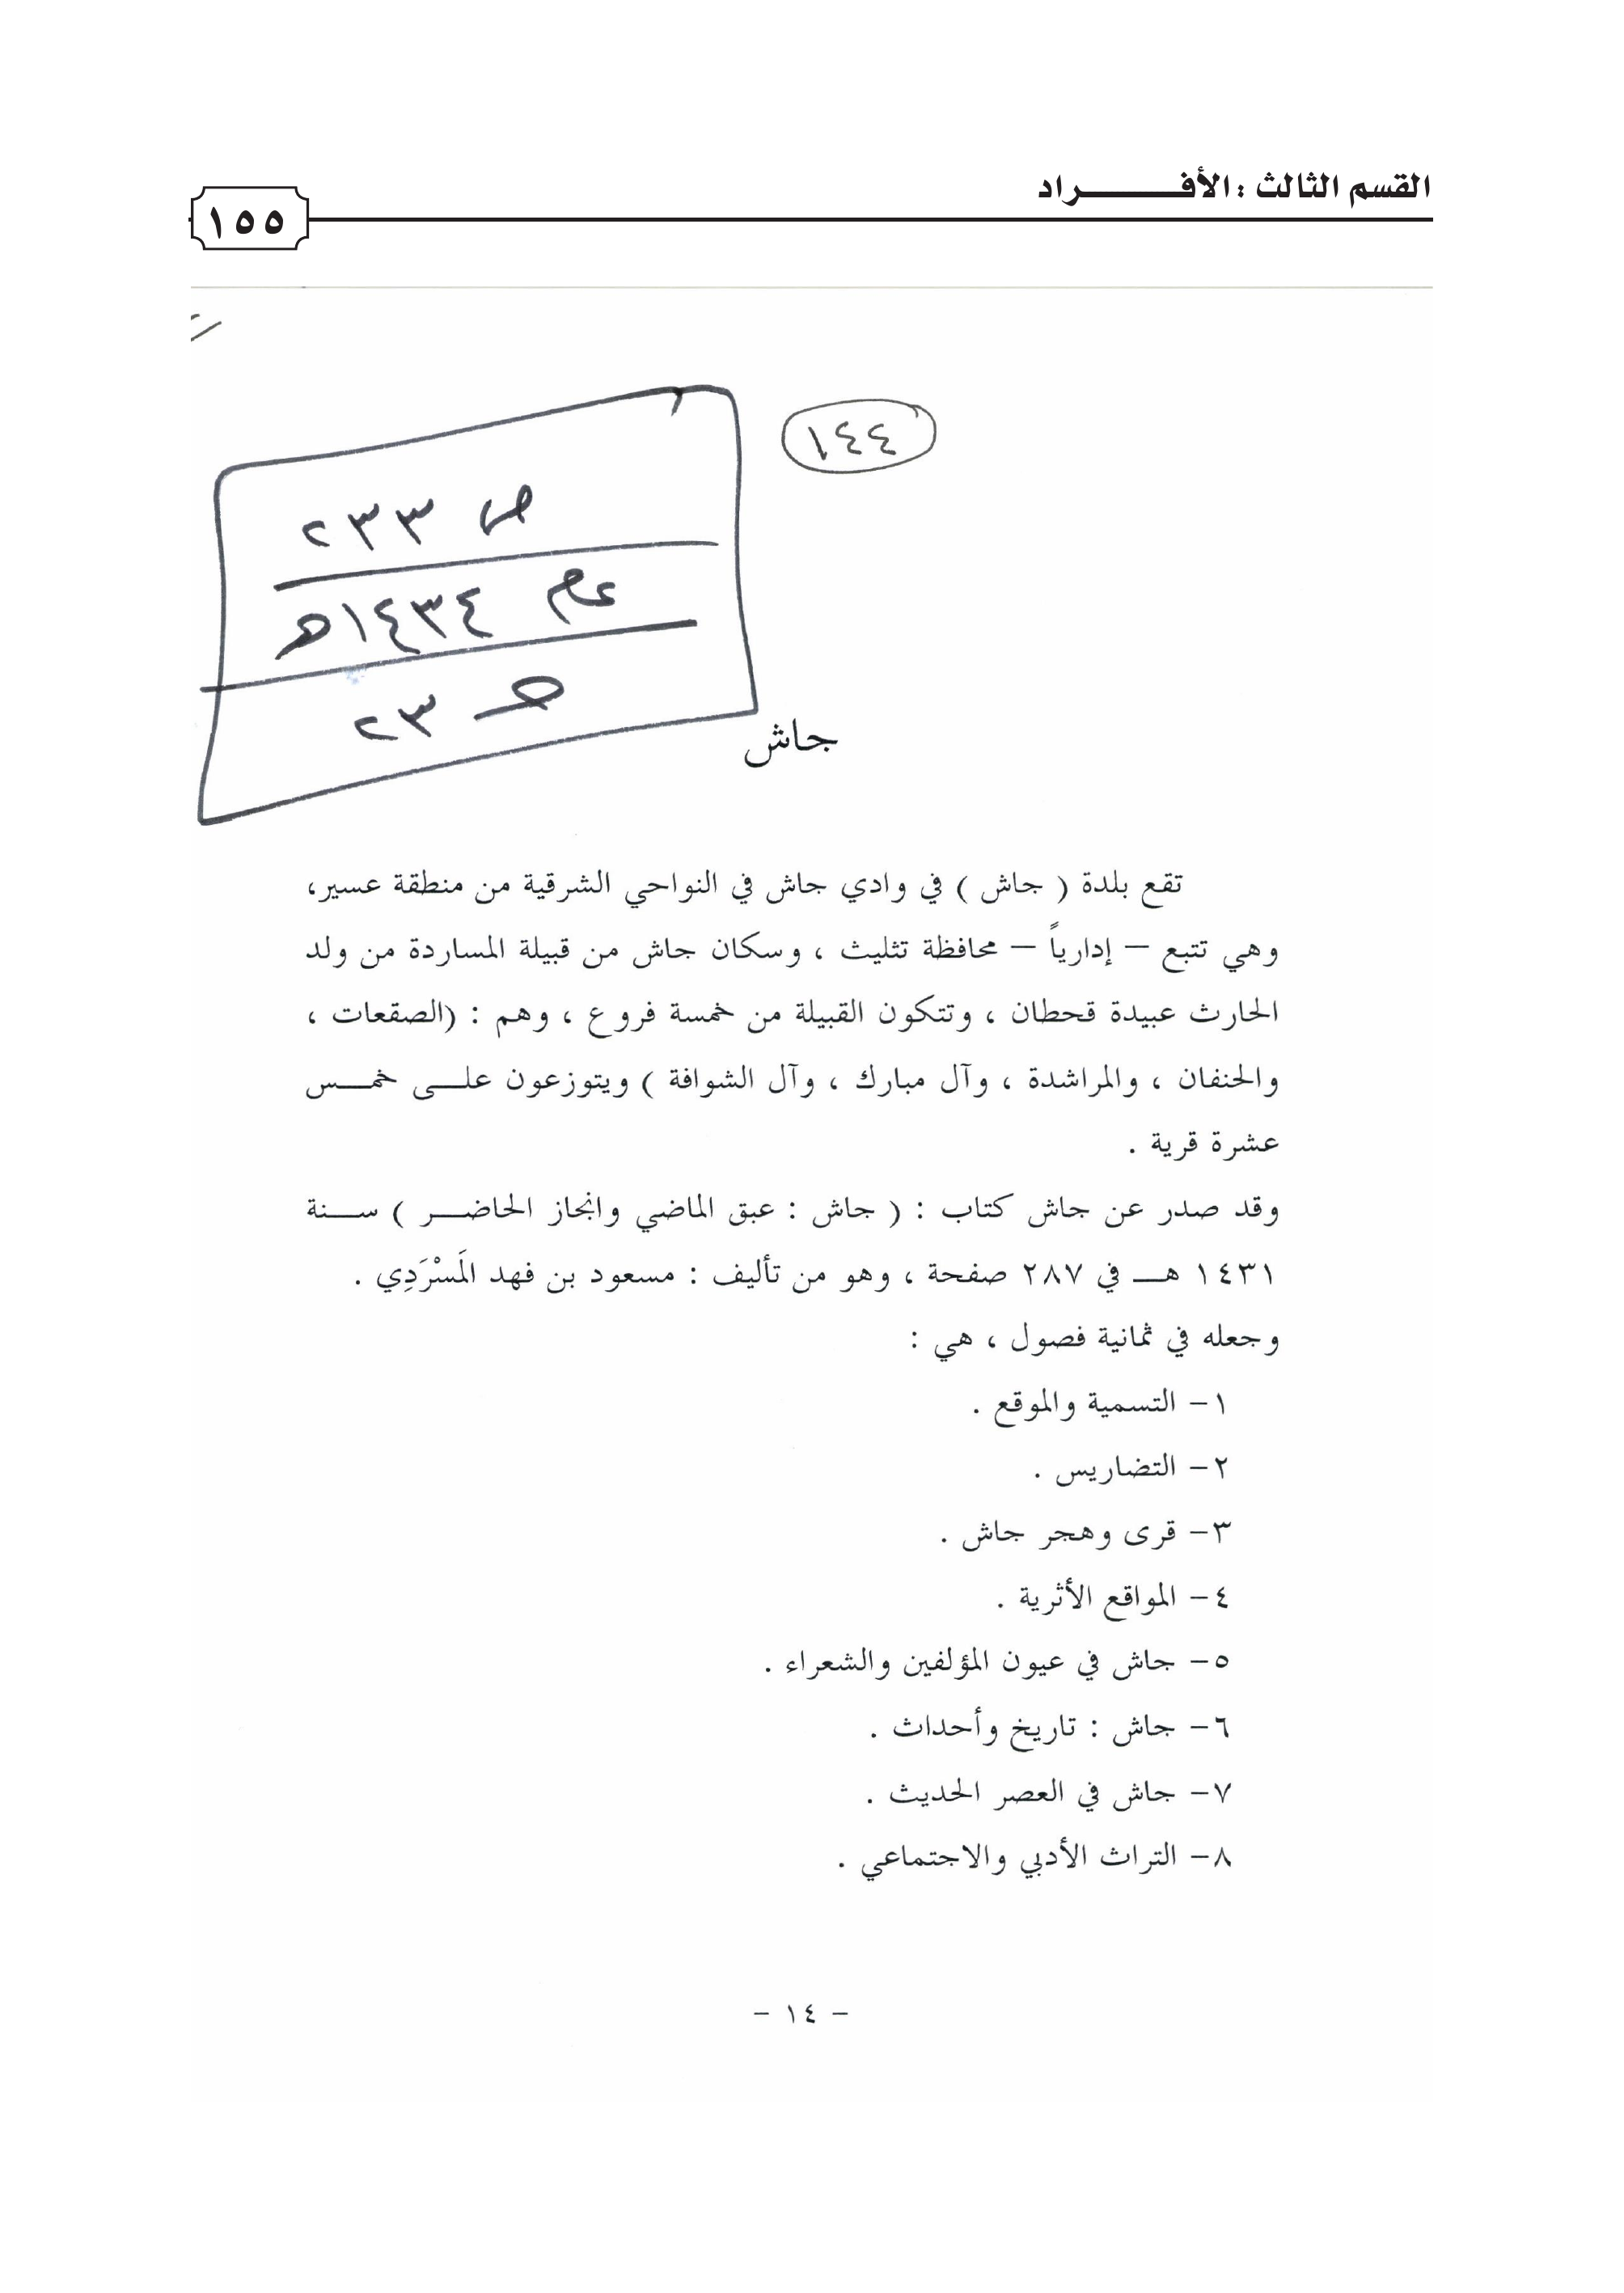 القسم الثالث : الأفـــــــراد
١٥٥
١٤٤
ص ٢٣٣
١٤٣٤هـ
٢٣
جاش
تقع بلدة ( جاش ) في وادي جاش في النواحي الشرقية من منطقة عسير،
وهي تتبع – إدارياً – محافظة تثليث ، وسكان جاش من قبيلة المساردة من ولد
الحارث عبيدة قحطان ، وتتكون القبيلة من خمسة فروع ، وهم : (الصقعات ،
والحنفان ، والمراشدة ، وآل مبارك ، وآل الشوافة ) ويتوزعون علـــى خمـــس
عشرة قرية .
وقد صدر عن جاش كتاب : ( جاش : عبق الماضي وانجاز الحاضـــر ) ســـنة
١٤٣١ هـــ في ٢٨٧ صفحة ، وهو من تأليف : مسعود بن فهد المَسْرَدِي .
وجعله في ثمانية فصول ، هي :
١– التسمية والموقع .
٢– التضاريس .
٣– قرى وهجر جاش .
٤– المواقع الأثرية .
٥– جاش في عيون المؤلفين والشعراء .
٦– جاش : تاريخ وأحداث .
٧– جاش في العصر الحديث .
٨– التراث الأدبي والاجتماعي .
– ١٤ –